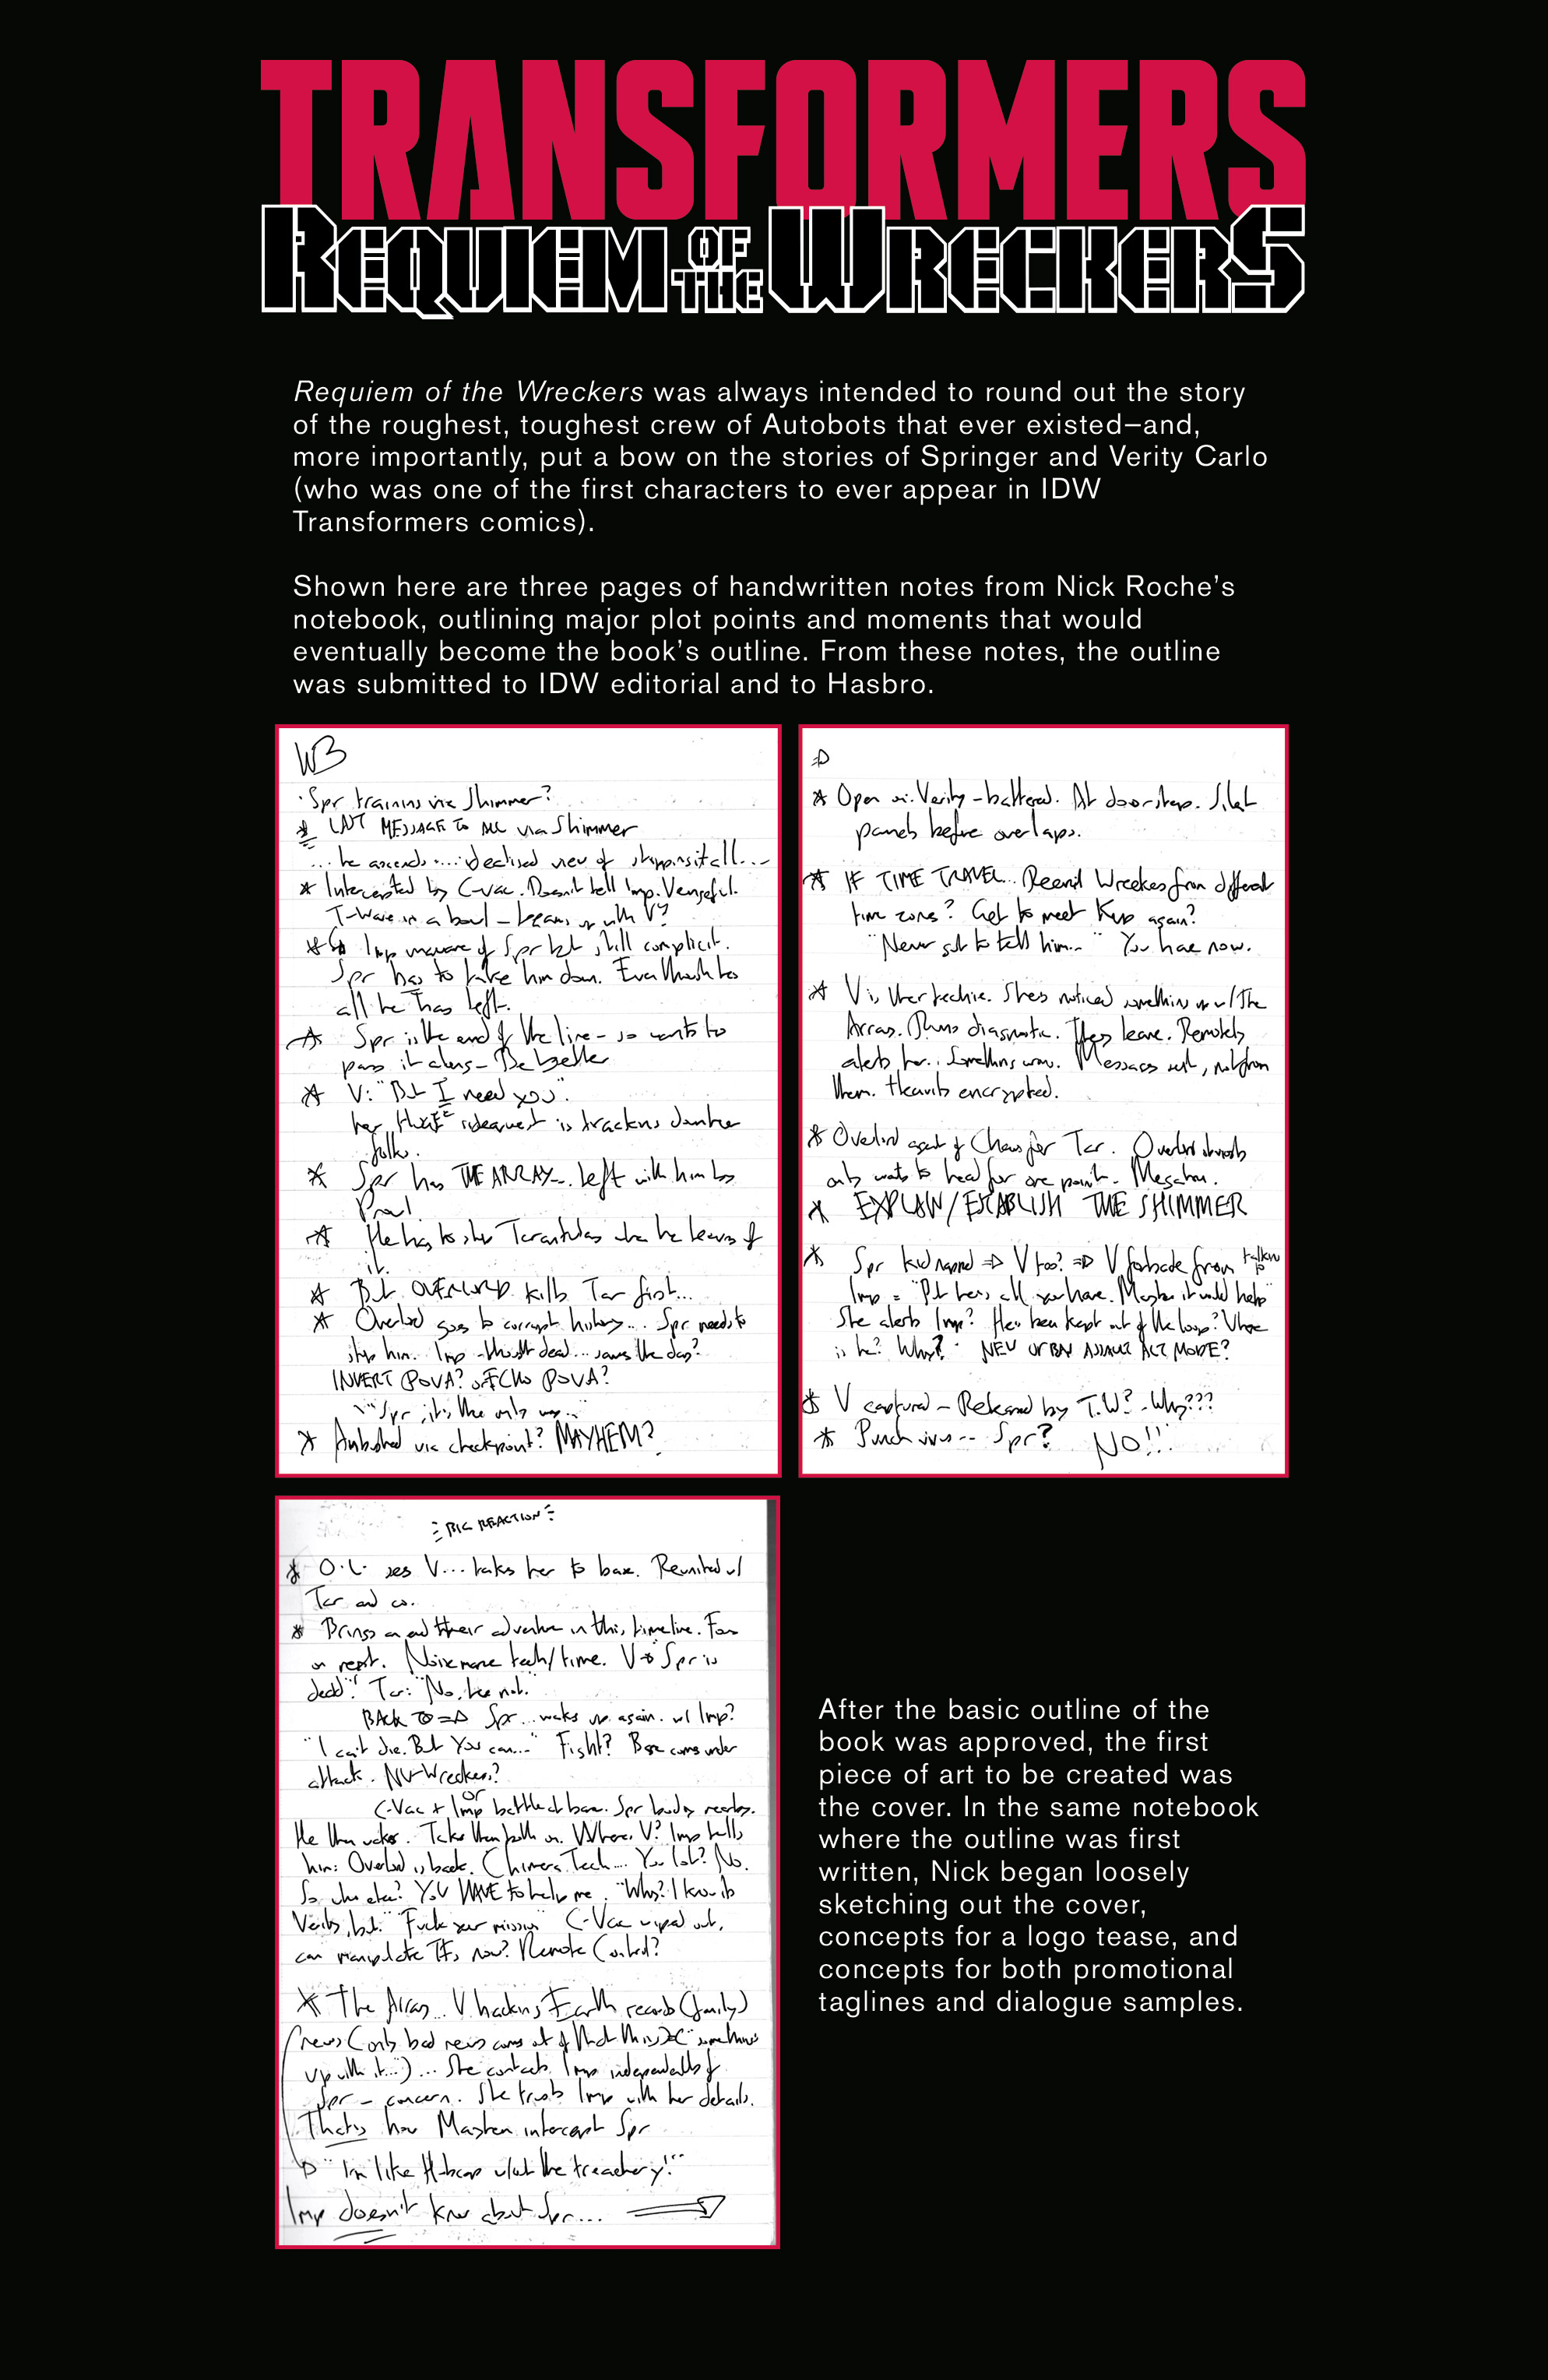 TRANSFORMERS
REQUIEM OF THE WRECKERS
Requiem of the Wreckers was always intended to round out the story
of the roughest, toughest crew of Autobots that ever existed—and,
more importantly, put a bow on the stories of Springer and Verity Carlo
(who was one of the first characters to ever appear in IDW
Transformers comics).
Shown here are three pages of handwritten notes from Nick Roche's
notebook, outlining major plot points and moments that would
eventually become the book's outline. From these notes, the outline
was submitted to IDW editorial and to Hasbro.
W3
Spr training via Shimmer?
LAST MESSAGE TO ALL via Shimmer
... he ascends .... view of all...
Intercepted by C-Vac. Doesn't tell Imp. Vengeful.
T-Wave in a bowl - up with V?
Imp unaware of Spr but still complicit.
Spr has to take him down. Even though he's
all he has left.
Spr is the end of the line - so wants to
pass it along - Be better
V: "But I need you".
her HUGE sidequest is tracking down her
folks.
Spr has THE ARRAY... left with him by
Prowl.
He has to stop Tarantulas when he learns of
it.
But OVERLORD kills Tar first...
Overlord goes to corrupt history... Spr needs to
stop him. Imp - thought dead... saves the day?
INVERT POVA? or ECHO POVA?
"Spr, it's the only way..."
Ambushed via checkpoint? MAYHEM?
Open w. Verity - battered. At doorstep. Silent
panels before overlaps.
IF TIME TRAVEL... Recruit Wreckers from different
time zones? Get to meet Kup again?
"Never got to tell him..." You have now.
V is Uber techie. She's noticed something up w/ The
Array. Runs diagnostic. They leave. Remotely
alerts her. Something wrong. Messages sent, not from
them. Heavily encrypted.
Overlord agent of Chaos for Tar. Overlord
only wants to head for one point - Megatron.
EXPLAIN/ESTABLISH THE SHIMMER
Spr kidnapped => V too? => V forbade from talking to
Imp = "But he's all you have. Maybe it would help"
She alerts Imp? He's been kept out of the loop? Where
is he? Why? NEW URBAN ASSAULT ALT MODE?
V captured - Released by T.W? - Why???
Punch ... Spr? NO!!
BIG REACTION
O.L. sees V... takes her to base. Reunited w/
Tar and co.
Brings an end their adventure in this timeline. Fan
on repeat. Noisemaze tech/time. V "Spr is
dead". Tar: "No, he's not."
BACK TO => Spr... wakes up again. w/ Imp?
"I can't die. But You can..." Fight? Base comes under
attack. NU-Wreckers?
or
C-Vac + Imp battle at base. Spr body nearby.
He then wakes. Takes them both on. Where's V? Imp tells
him: Overlord is back. Chimera Tech.... You lot? No.
So who else? YOU HAVE to help me. "Why? I know it's
Verity, but." "Fuck your mission" C-Vac wiped out,
can manipulate TFs now? Remote Control?
The Array... V hacking Earth records (family)
news (only bad news comes out of that thing "something's
up with it...")... She contacts Imp independently of
Spr - concern. She trusts Imp with her details.
That's how Mayhem intercept Spr
"I'm like w/out the treachery!"
Imp doesn't know about Spr...
After the basic outline of the
book was approved, the first
piece of art to be created was
the cover. In the same notebook
where the outline was first
written, Nick began loosely
sketching out the cover,
concepts for a logo tease, and
concepts for both promotional
taglines and dialogue samples.